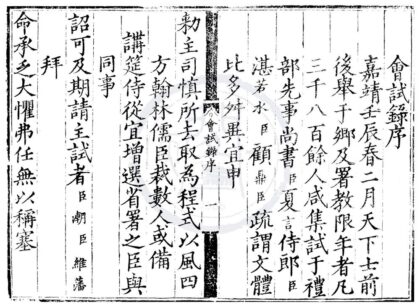 會試録序
嘉靖壬辰春二月天下士前
後舉于鄉及署教限年者凡
三千八百餘人咸集試于禮
部先事尚書臣夏言侍郎臣
湛若水臣顧鼎臣疏謂文體
比多舛異宜申
會試録序
一
勑主司慎所去取為程式以風四
方翰林儒臣裁數人或備
講筵侍從宜增選省署之臣與
同事
詔可及期請主試者臣潮臣維藩
拜
命承乏大懼弗任無以稱塞